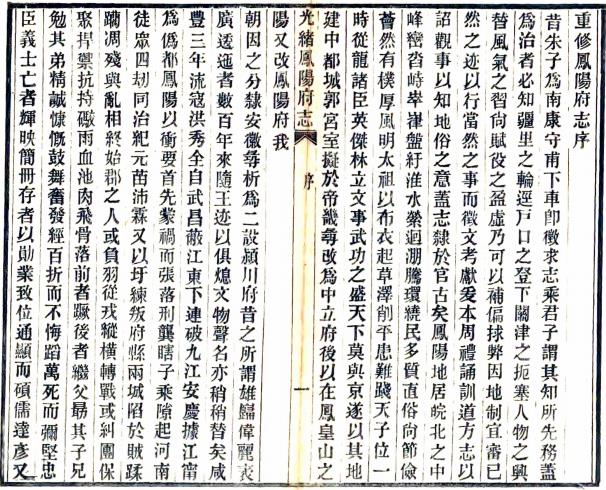 重修鳳陽府志序
昔朱子為南康守甫下車卽徵求志乘君子謂其知所先務蓋
為治者必知疆里之輪逕戶口之登下關津之扼塞人物之興
替風氣之習尙賦役之盈虛乃可以補偏捄弊因地制宜審已
然之迹以行當然之事而徵文考獻爰本周禮誦訓道方志以
詔觀事以知地俗之意蓋志隸於官古矣鳳陽地居皖北之中
峰巒沓峙崒嵂盤紆淮水縈迴潮騰環繞民多質直俗尙節儉
薈然有樸厚風明太祖以布衣起草澤削平患難踐天子位一
時從龍諸臣英傑林立文事武功之盛天下莫與京遂以其地
建中都城郭宮室擬於帝畿尋改為中立府後以在鳳皇山之
光緒鳳陽府志 序 一
陽又改鳳陽府我
朝因之分隸安徽尋析為二設潁川府昔之所謂雄偉麗袤
廣逶迤者數百年來隨王迹以俱熄文物聲名亦稍稍替矣咸
豐三年流寇洪秀全自武昌蔽江東下連破九江安慶據江甯
為僞都鳳陽以衝要首先蒙禍而張落刑龔瞎子乘隙起河南
徒眾四刼同治紀元苗沛霖又以圩練叛府縣兩城陷於賊蹂
躪凋殘與亂相終始郡之人或負羽從戎縱橫轉戰或糾團保
聚捍禦抗持礮雨血池肉飛骨落前者蹶後者繼父勗其子兄
勉其弟精誠慷慨鼓舞奮發經百折而不悔蹈萬死而彌堅忠
臣義士亡者輝映簡冊存者以勛業致位通顯而碩儒達彥又